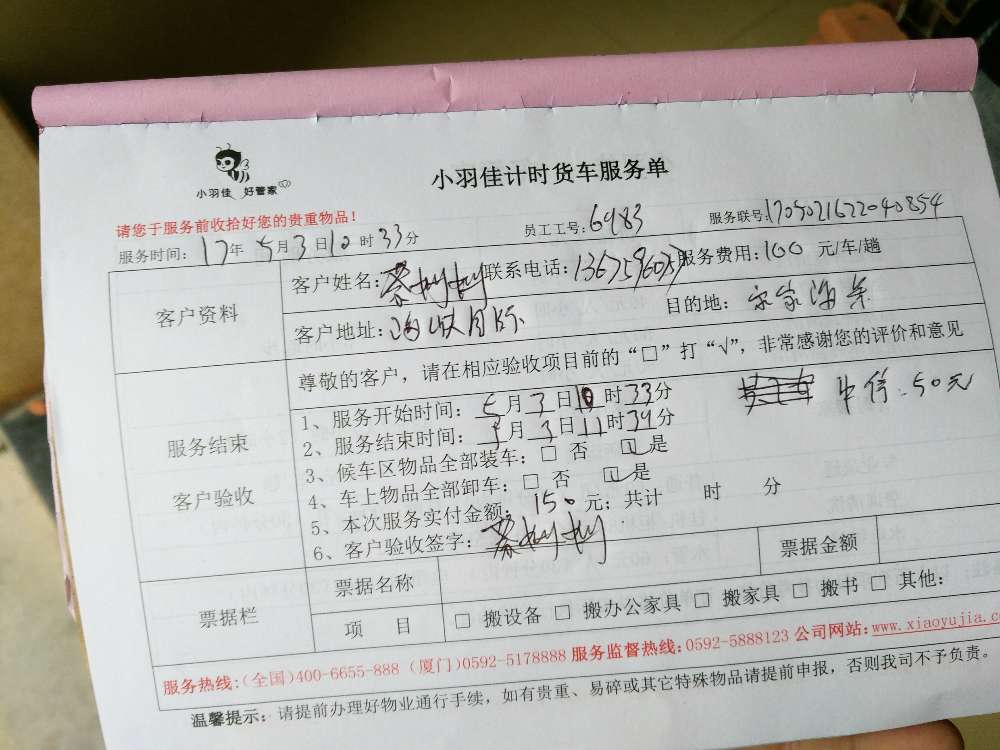 小羽佳 好管家
小羽佳计时货车服务单
请您于服务前收拾好您的贵重物品!
服务时间: 17年 5月 3日10时33分 员工工号:6983 服务联号:170502162204 0854
客户资料
客户姓名: 联系电话: 服务费用:100 元/车/趟
客户地址: 目的地:
尊敬的客户,请在相应验收项目前的“□”打“√”,非常感谢您的评价和意见
服务结束
客户验收
1、服务开始时间: 5月3日10时33分 中信.50元
2、服务结束时间: 5月3日11时39分
3、候车区物品全部装车:□ 否 ☑是
4、车上物品全部卸车:□ 否 ☑是
5、本次服务实付金额: 150 元;共计 时 分
6、客户验收签字:
票据栏
票据名称 票据金额
项 目 □ 搬设备 □ 搬办公家具 □ 搬家具 □ 搬书 □ 其他:
服务热线:(全国)400-6655-888 (厦门)0592-5178888 服务监督热线:0592-5888123 公司网站:www.xiaoyujia.co
温馨提示:请提前办理好物业通行手续,如有贵重、易碎或其它特殊物品请提前申报,否则我司不予负责。